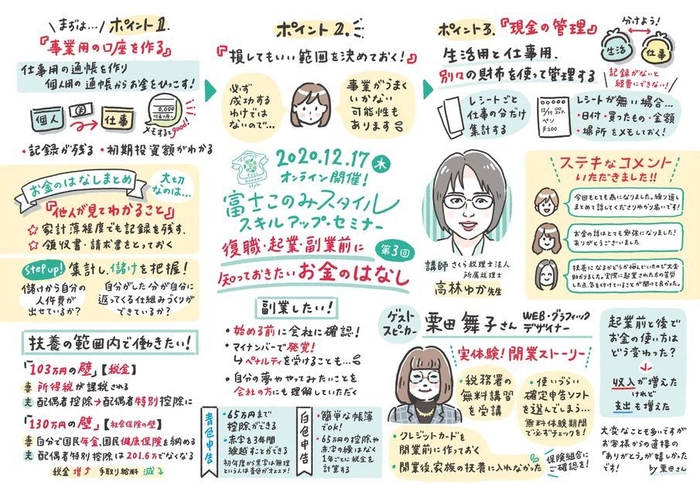 まずは…
ポイント1.
『事業用の口座を作る』
仕事用の通帳を作り
個人用の通帳からお金をひっこす!
個人
仕事
メモするとgood!
・記録が残る・初期投資額がわかる
ポイント2.
『損してもいい範囲を決めておく!』
必ず
成功する
わけでは
ないので…
事業がうまく
いかない
可能性も
あります
ポイント3.『現金の管理』
分けよう!
生活
仕事
生活用と仕事用、
別々の財布を使って管理する
記録がないと
経費にできない!
レシートごと
仕事の分だけ
集計する
ペン
¥200
レシートが無い場合…
・日付・買ったもの・金額
・場所をメモしておく!
2020.12.17木
オンライン開催!
富士このみスタイル
スキルアップ・セミナー
第3回
復職・起業・副業前に
知っておきたいお金のはなし
講師 さくら税理士法人
所属税理士
高林ゆか先生
ステキなコメント
いただきました!!
今回もとても為になりました。繰り返し
まとめて話してくださりやかり易いです!
お金の話はとても勉強になりました!
ありがとうございました
お金のはなしまとめ
大切なのは…
『他人が見てわかること』
☆家計簿程度でも記録を残す、
☆領収書・請求書をとっておく
step up! 集計し、儲けを把握!
儲けから自分の
人件費が
出せているか?
自分がした分が自分に
返ってくる仕組みづくりが
できているか?
扶養の範囲内で働きたい!
「103万円の壁」【税金】
妻 所得税が課税される
夫 配偶者控除→配偶者特別控除に
「130万円の壁」【社会保険の壁】
妻 自分で国民年金、国民健康保険を納める
夫 配偶者特別控除は201.6万でなくなる
税金増↑ 手取り給料減↓
副業したい!
・始める前に会社に確認!
・マイナンバーで発覚!
↳ペナルティを受けることも…
・自分の夢ややってみたいことを
会社の方にも理解していただく
青色申告
・65万円まで
控除ができる
・赤字を3年間
繰越すことができる
初年度が黒字は無理
という人は青色がオススメ!
白色申告
・簡単な帳簿
でOK!
・65万円の控除や
赤字の繰りはなく
1年ごとに税金を
計算する
ゲスト
スピーカー
栗田 舞子さん
WEB・グラフィック
デザイナー
実体験!開業ストーリー
・税務署の
無料講習
を受講
・使いづらい
確定申告ソフト
を選んでしまう…
無料体験期間
で必ずチェックを!
・クレジットカードを
開業前に作っておく
・開業後、家族の扶養に入れなかった
保険組合に
ご確認を!
起業前と後で
お金の使い方は
どう変わった?
収入が増えた
けれど
支出も増えた
大変なことも多いですが
お客様からの直接の
「ありがとう」が嬉しかった
by 栗田さん